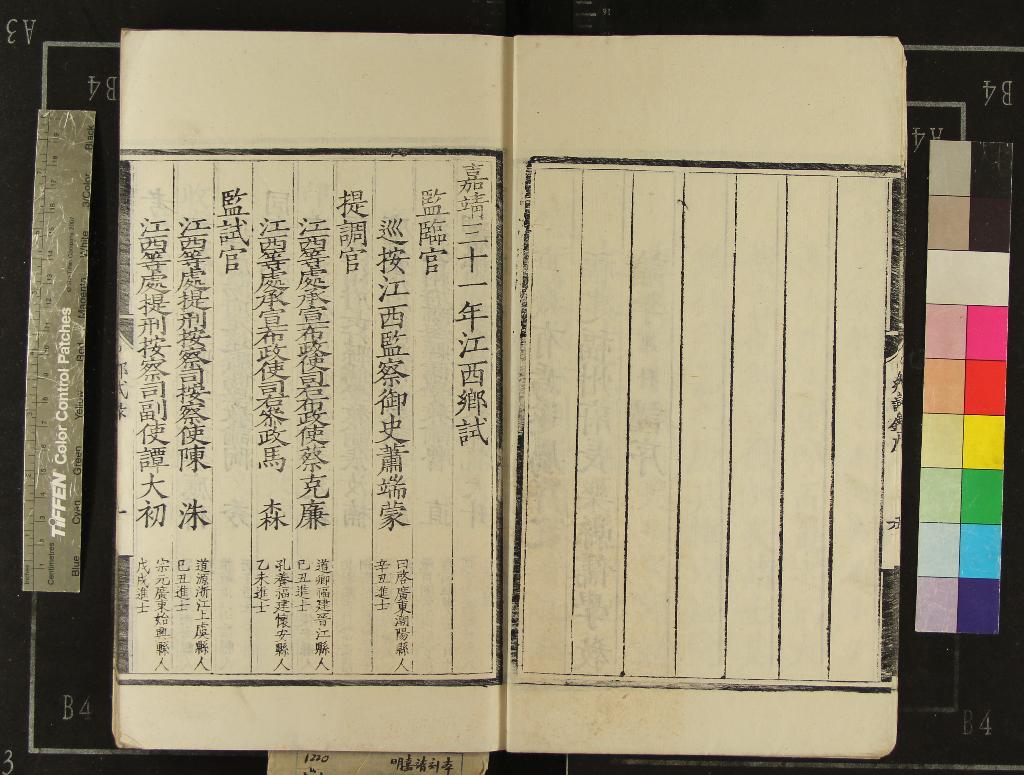 嘉靖三十一年江西鄉試
監臨官
巡按江西監察御史蕭端蒙 曰啓廣東潮陽縣人 辛丑進士
提調官
江西等處承宣布政使司右布政使蔡克廉 道卿福建晉江縣人 己丑進士
江西等處承宣布政使司右叅政馬 森 孔養福建懷安縣人 乙未進士
監試官
江西等處提刑按察司按察使陳 洙 道源浙江上虞縣人 己丑進士
江西等處提刑按察司副使譚大初 宗元廣東始興縣人 戊戌進士
一
A3
B4
B4
A4
B4
B4
3
TIFFEN Color Control Patches
Centimetres
Inches
Blue
Cyan
Green
Yellow
Red
Magenta
White
3/Color
Black
1220